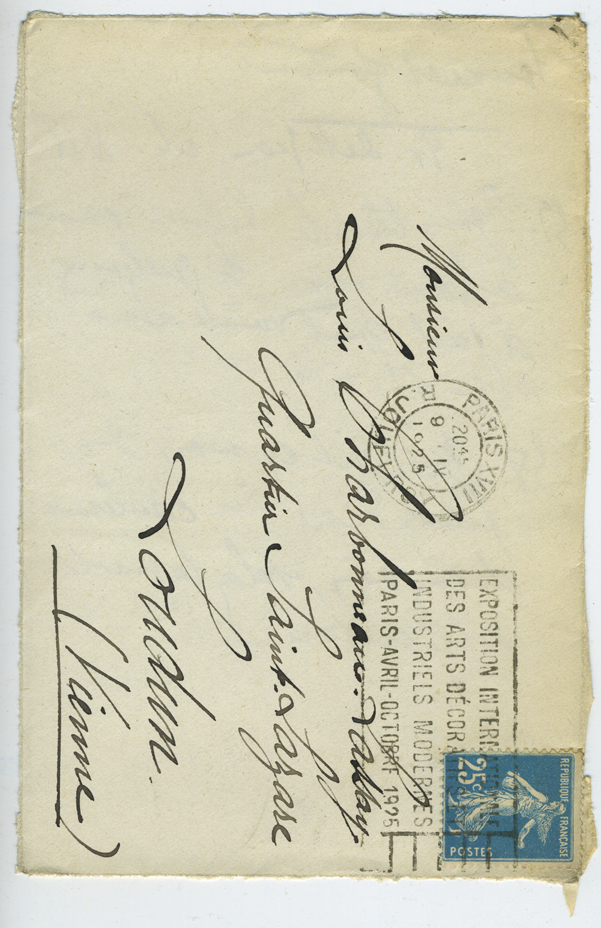 Monsieur
Louis Charbonneau-Lassay
Quartier Saint-Lazare
Loudun.
(Vienne)
PARIS XVII
R. JOUFFROY
20
9 IV
1925
EXPOSITION INTERNATIONALE
DES ARTS DÉCORATIFS
INDUSTRIELS MODERNES
PARIS-AVRIL-OCTOBRE 1925
REPUBLIQUE FRANÇAISE
25c
POSTES